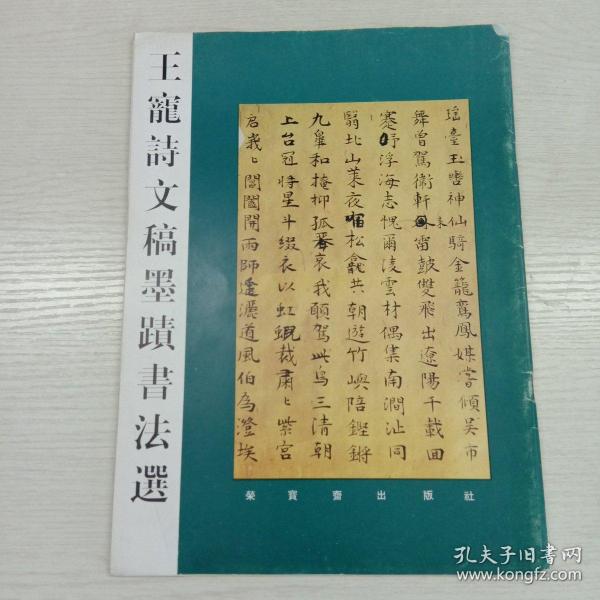 王寵詩文稿墨蹟書法選
瑶臺玉巒神仙騎金籠鸞鳳媒嘗傾吳市
舞曾駕衛軒來雷鼓雙飛出遼陽千載回
蹇浮海志愧爾凌雲材偶集南澗沚同
翳北山萊夜宿松龕共朝遊竹嶼陪鏗鏘
九皋和掩抑孤哀我願駕此鳥三清朝
上台冠將星斗綴衣以虹蜺裁肅〻紫宮
啟峩〻閶闔開雨師灑道風伯為澄埃
榮寶齋出版社
孔夫子旧书网
www.kongfz.com